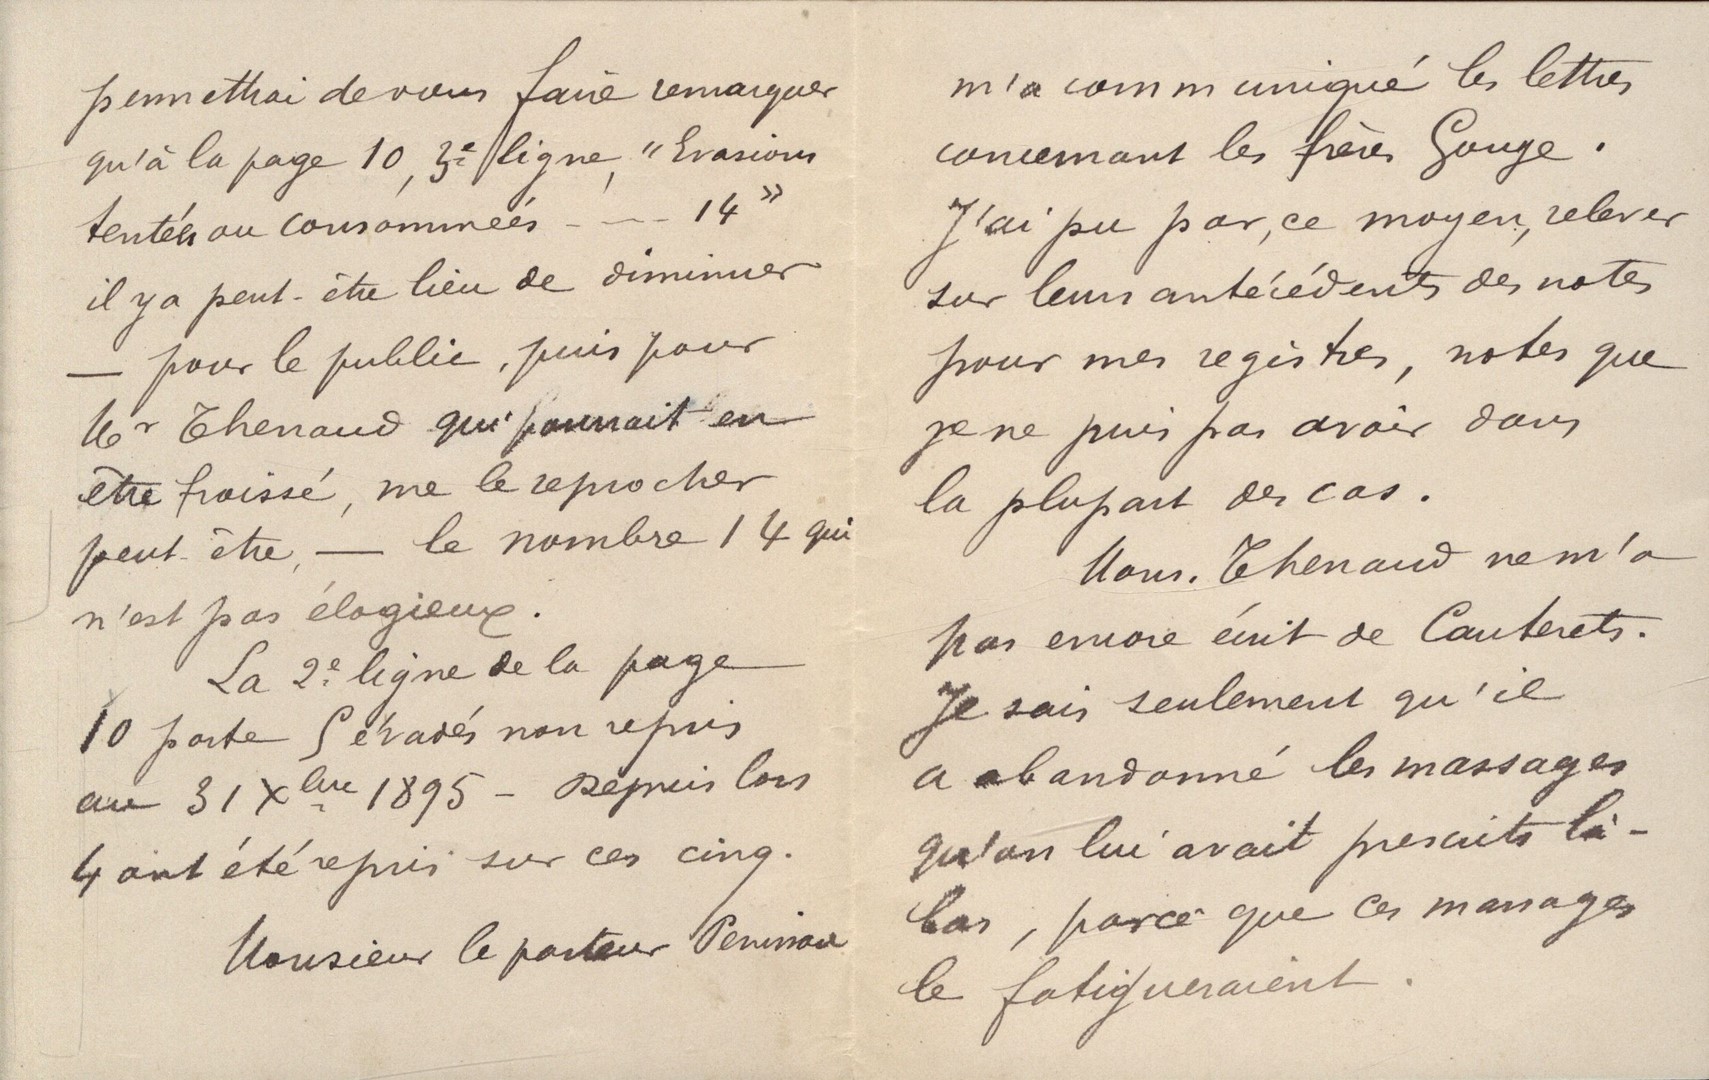 permettrai de vous faire remarquer
qu'à la page 10, 3e ligne, "Evasions
tentées ou consommées - - - 14"
il y a peut-être lieu de diminuer
— pour le public, puis pour
Mr Thenaud qui pourrait en
être froissé, me le reprocher
peut-être, — le nombre 14 qui
n'est pas élogieux.
La 2e ligne de la page
10 porte 5 évadés non repris
au 31 Xbre 1895 - Depuis lors
4 ont été repris sur ces cinq.
Monsieur le pasteur
m'a communiqué les lettres
concernant les frères Gouge.
J'ai pu par, ce moyen, relever
sur leurs antécédents des notes
pour mes registres, notes que
je ne puis pas avoir dans
la plupart des cas.
Mons. Thenaud ne m'a
pas encore écrit de Cauterets.
Je sais seulement qu'il
a abandonné les massages
qu'on lui avait prescrits là-
bas, parce que ces massages
le fatigueraient.